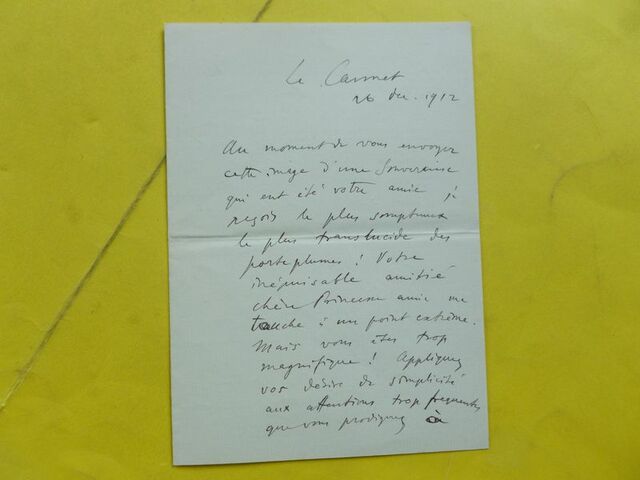 Le Cannet
26 dec. 1912
Au moment de vous envoyer
cette image d'une Souveraine
qui eut été votre amie je
reçois le plus somptueux
le plus translucide des
porteplumes ! Votre
inépuisable amitié
chère Princesse amie me
touche à un point extrême.
Mais vous êtes trop
magnifique ! Appliquez
vos désirs de simplicité
aux attentions trop fréquentes
que vous prodiguez à